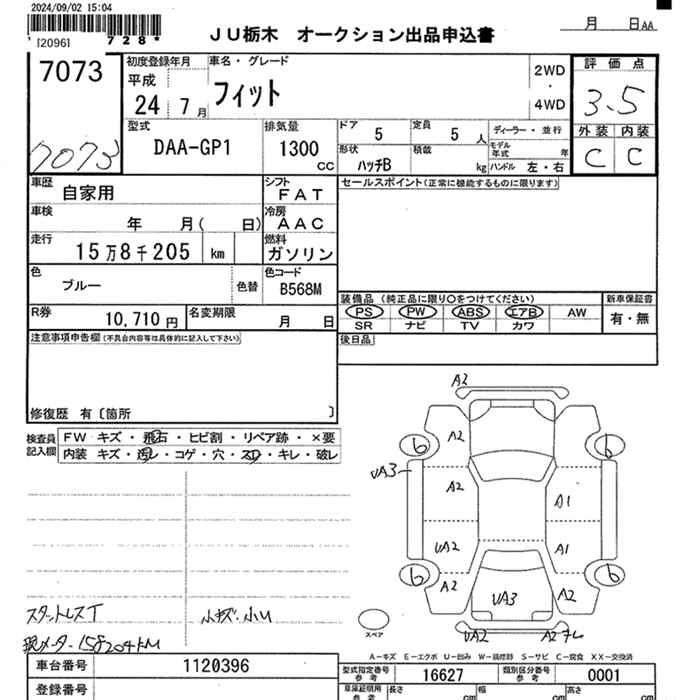 2024/09/02 15:04
*120961 728*
JU栃木 オークション出品申込書
月 日AA
7073
7073
初度登録年月
平成
24 7月
車名・グレード
フィット
2WD
・
4WD
評価点
3.5
外装 内装
C C
型式
DAA-GP1
排気量
1300
CC
ドア 5
定員 5 人
ディーラー・並行
形状
ハッチB
積載 kg
モデル年式 年
ハンドル 左・右
車歴
自家用
シフト
FAT
セールスポイント(正常に機能するものに限ります)
車検
年 月( 日)
冷房
AAC
走行
15万8千205 km
燃料
ガソリン
色
ブルー
色替
色コード
B568M
装備品(純正品に限り〇をつけてください)
PS PW ABS エアB AW
SR ナビ TV カワ
新車保証書
有・無
R券
10,710円
名変期限
月 日
後日品
注意事項申告欄(不具合内容等は具体的に記入して下さい)
修復歴 有〔箇所 〕
検査員
記入欄
FW キズ・飛石・ヒビ割・リペア跡・×要
内装 キズ・汚レ・コゲ・穴・スレ・キレ・破レ
A2
6 A2 6
UA3 A2 A1
UA2 A1
6 A2 UA3 A2 6
UA2 A2
スペア
スタットレスT
小キズ・小U
現メーター158204KM
A-キズ E-エクボ U-凹み W-補修跡 S-サビ C-腐食 XX-交換済
車台番号
1120396
型式指定番号
参考
16627
類別区分番号
参考
0001
登録番号
車庫証明用
参考
長さ cm
幅 cm
高さ cm